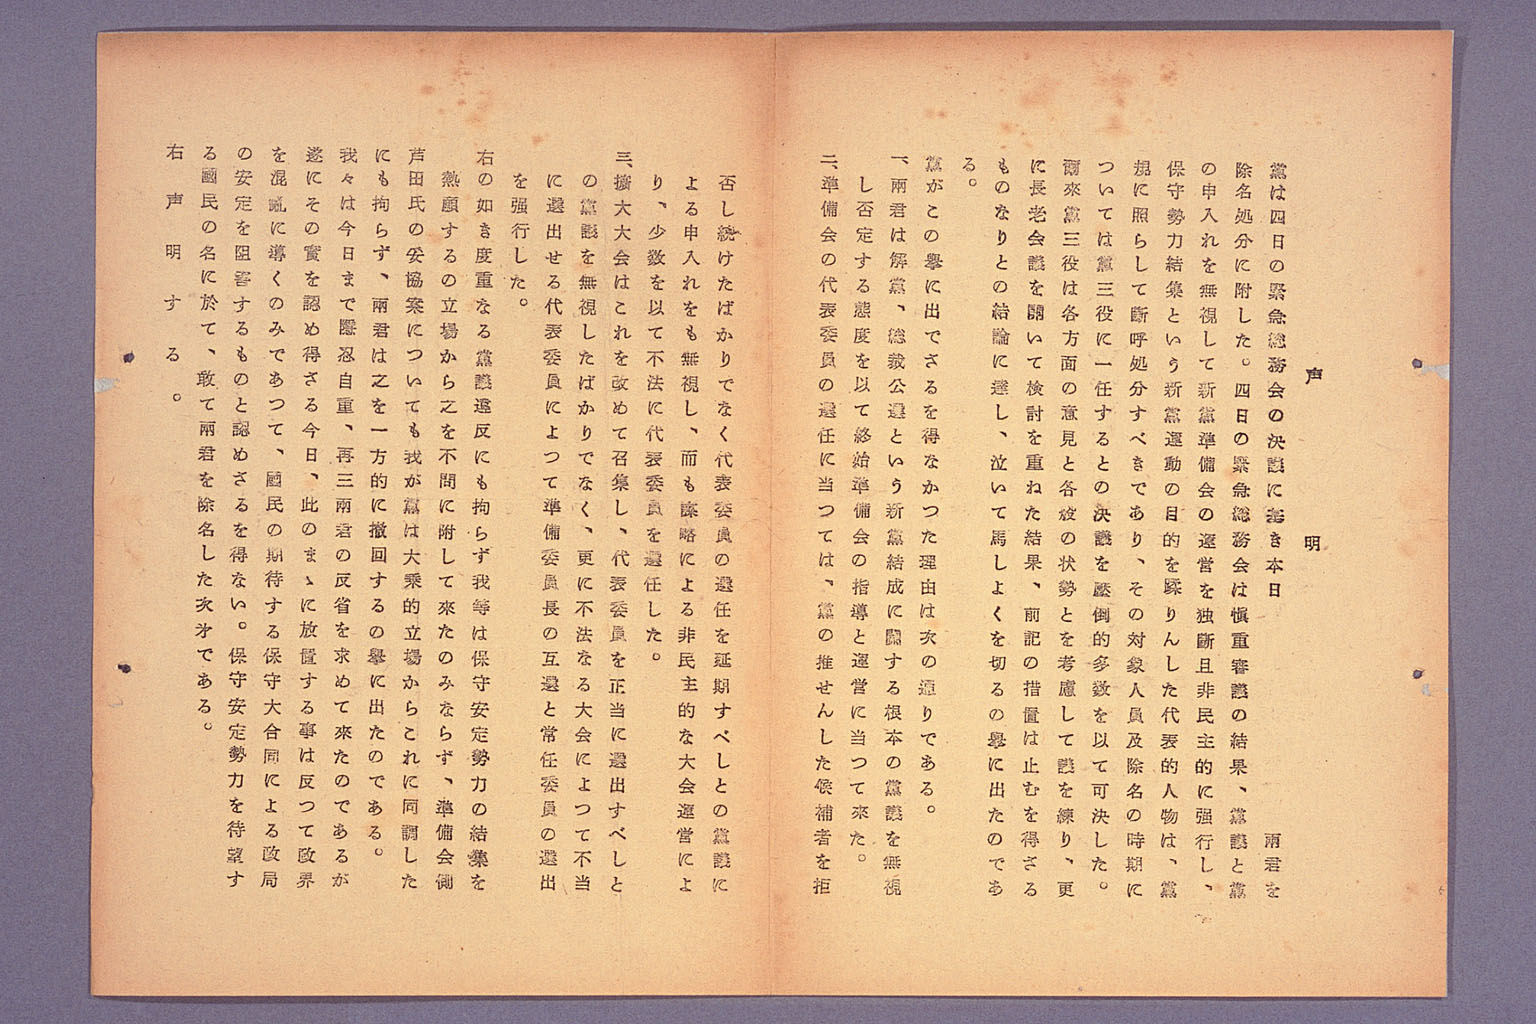 声明
黨は四日の緊急総務会の決議に基き本日　　　　　　　　　両君を
除名処分に附した。四日の緊急総務会は愼重審議の結果、黨議と黨
の申入れを無視して新黨準備会の運営を独断且非民主的に强行し、
保守勢力結集という新黨運動の目的を蹂りんした代表的人物は、黨
規に照らして断呼処分すべきであり、その対象人員及除名の時期に
ついては黨三役に一任するとの決議を壓倒的多数を以て可決した。
爾來黨三役は各方面の意見と各般の状勢とを考慮して議を練り、更
に長老会議を開いて検討を重ねた結果、前記の措置は止むを得ざる
ものなりとの結論に達し、泣いて馬しよくを切るの擧に出たのであ
る。
黨がこの擧に出でざるを得なかつた理由は次の通りである。
一、兩君は解黨、総裁公選という新黨結成に関する根本の黨議を無視
し否定する態度を以て終始準備会の指導と運営に当つて來た。
二、準備会の代表委員の選任に当つては、黨の推せんした候補者を拒
否し続けたばかりでなく代表委員の選任を延期すべしとの黨議に
よる申入れをも無視し、而も謀略による非民主的な大会運営によ
り、少数を以て不法に代表委員を選任した。
三、擴大大会はこれを改めて召集し、代表委員を正当に選出すべしと
の黨議を無視したばかりでなく、更に不法なる大会によつて不当
に選出せる代表委員によつて準備委員長の互選と常任委員の選出
を强行した。
右の如き度重なる黨議違反にも拘らず我等は保守安定勢力の結集を
熱願するの立場から之を不問に附して來たのみならず、準備会側
芦田氏の妥協案についても我が黨は大乘的立場からこれに同調した
にも拘らず、兩君は之を一方的に撤回するの擧に出たのである。
我々は今日まで隱忍自重、再三兩君の反省を求めて來たのであるが
遂にその實を認め得ざる今日、此のまゝに放置する事は反つて政界
を混乱に導くのみであつて、國民の期待する保守大合同による政局
の安定を阻害するものと認めざるを得ない。保守安定勢力を待望す
る國民の名に於て、敢て兩君を除名した次才である。
右声明する。